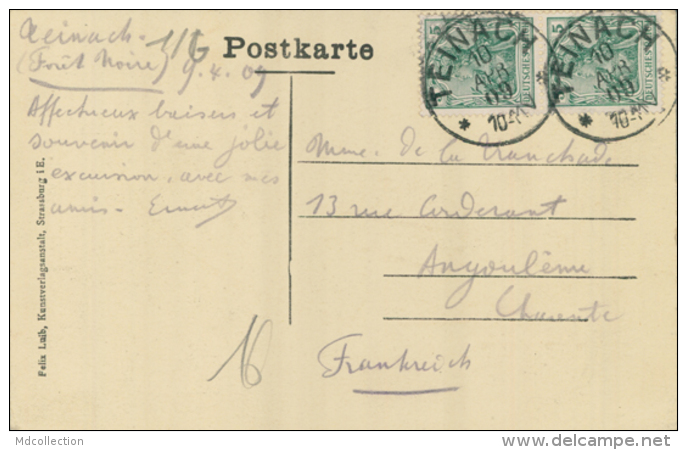 Teinach.
(Forêt Noire) 9.4.09
Affectueux baisers et
souvenir d'une jolie
excursion, avec mes
amis - Ernest
Postkarte
5
DEUTSCHES REICH
5
DEUTSCHES
TEINACH
10
APR
09
* 10-11V *
TEINACH
10
APR
09
* 10-11V *
Mme. de la Tranchade
13 rue Corderant
Angoulême
Charente
Frankreich
Felix Luib, Kunstverlagsanstalt, Strassburg i.E.
16
Mdcollection
www.delcampe.net